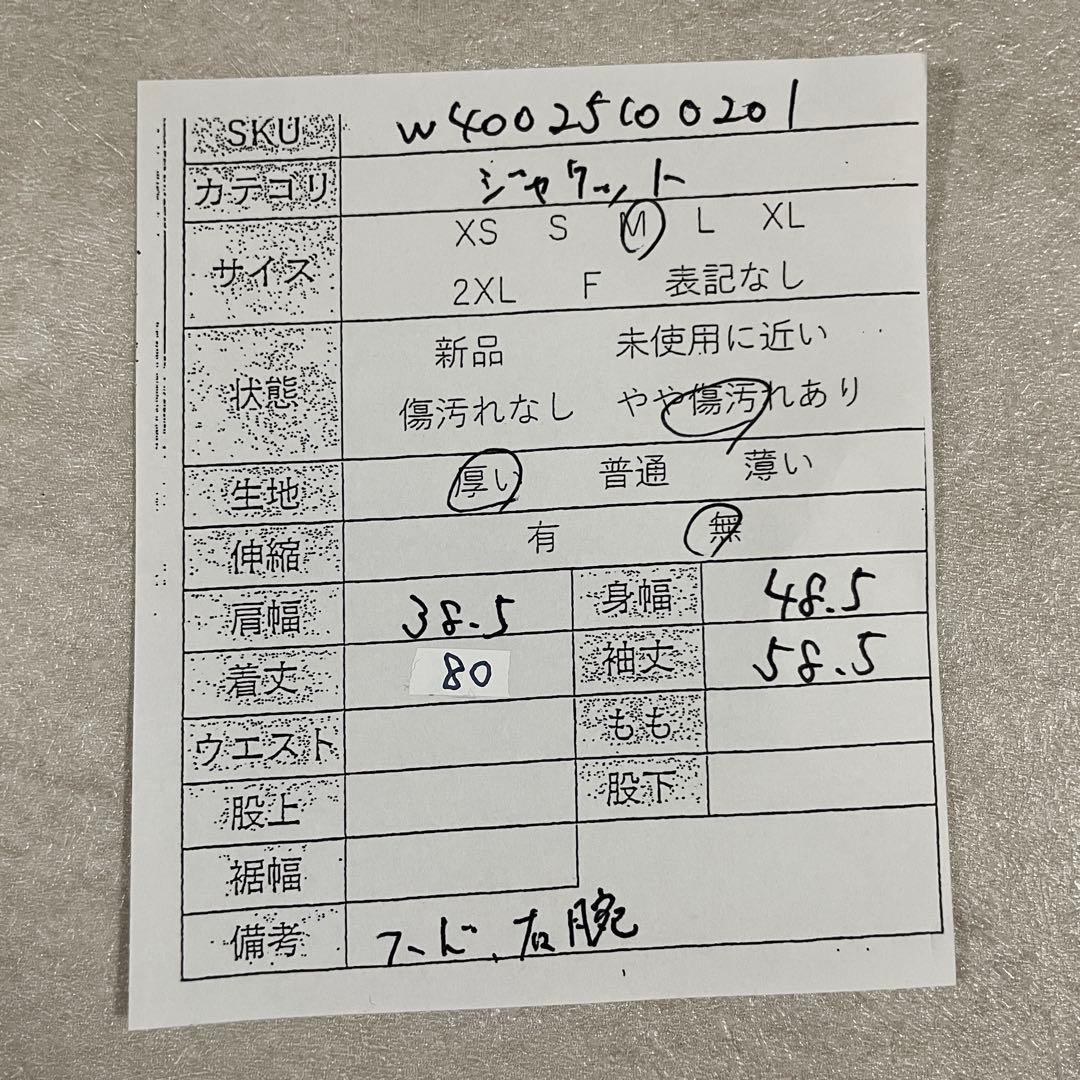 SKU W40025100201
カテゴリ ジャケット
サイズ XS S M L XL
2XL F 表記なし
状態 新品 未使用に近い
傷汚れなし やや傷汚れあり
生地 厚い 普通 薄い
伸縮 有 無
肩幅 38.5 身幅 48.5
着丈 80 袖丈 58.5
ウエスト もも
股上 股下
裾幅
備考 フード、右腕